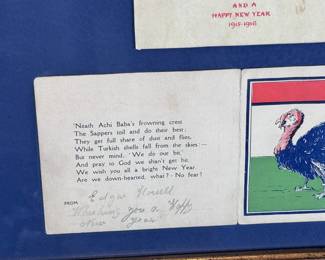 AND A
HAPPY NEW YEAR
1915-1916
'Neath Achi Baba's frowning crest
The Sappers toil and do their best;
They get full share of dust and flies,
While Turkish shells fall from the skies:—
But never mind. "We do our bit,"
And pray to God we shan't get hit.
We wish you all a bright New Year.
Are we down-hearted, what? - No fear!
FROM
Edgar
Wishing you a Happy
New Year